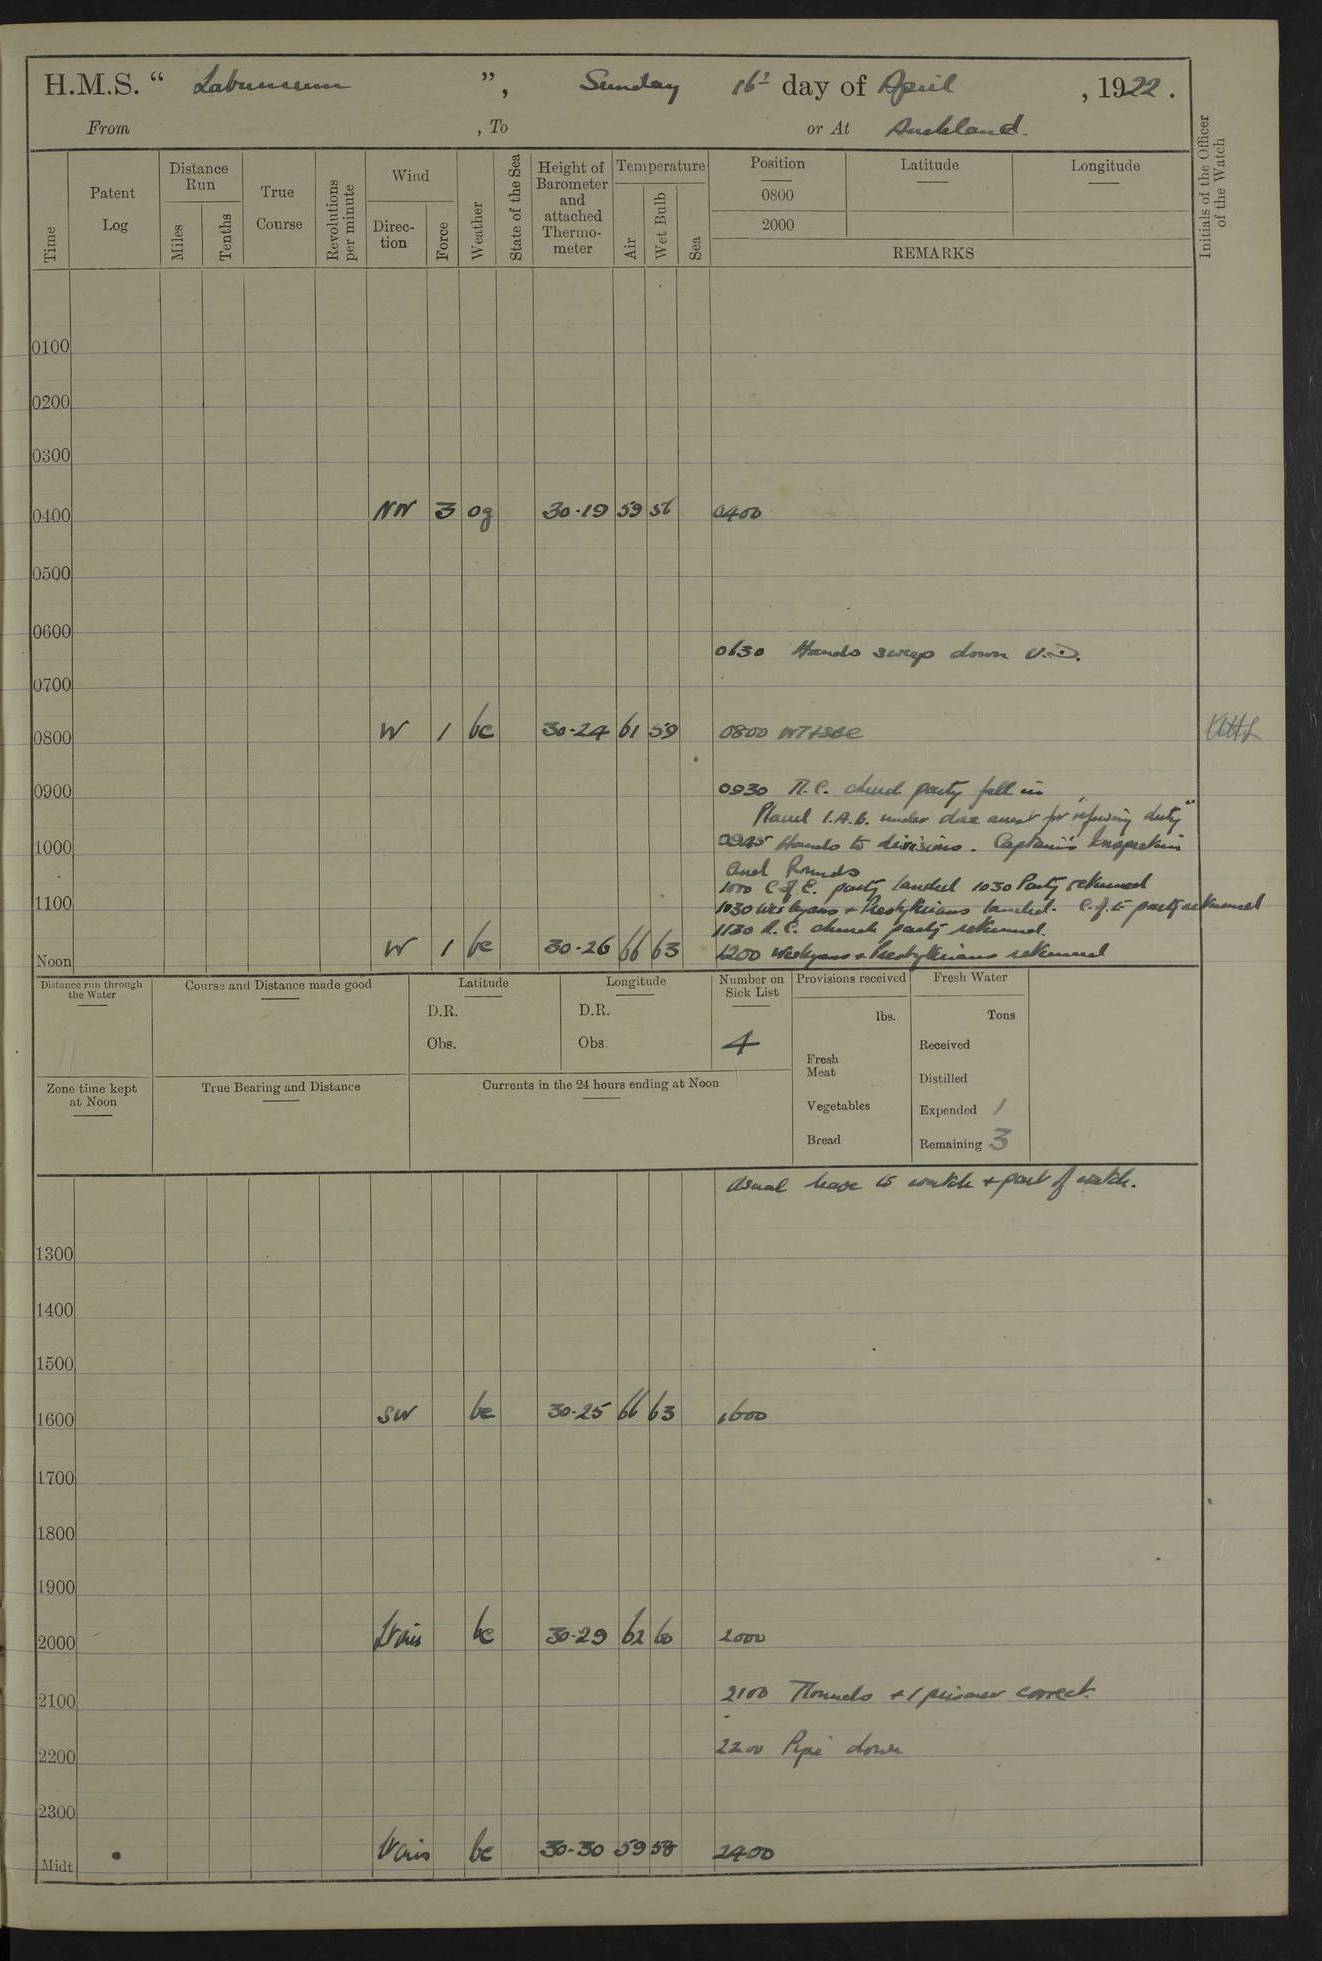 H.M.S. “ Laburnum ”, Sunday 16th day of April , 1922.
From , To or At Auckland.
Time
Patent Log
Distance Run
Miles
Tenths
True Course
Revolutions per minute
Wind
Direc-tion
Force
Weather
State of the Sea
Height of Barometer and attached Thermo-meter
Temperature
Air
Wet Bulb
Sea
Position Latitude Longitude
0800
2000
REMARKS
Initials of the Officer of the Watch
0100
0200
0300
0400 NW 3 og 30-19 59 56 0400
0500
0600
0630 Hands sweep down U.D.
0700
0800 W 1 bc 30-24 61 59 0800
0900
0930 R.C. church party fell in
under close arrest for "refusing duty"
1000
0945 Hands to divisions. Captain's Inspection
and Rounds
1000 C of E. party landed 1030 Party returned
1100
1030 Wesleyans + Presbyterians landed. C. of E party returned
1130 R.C. church party returned.
Noon W 1 bc 30-26 66 63 1200 Wesleyans + Presbyterians returned
Distance run through the Water
Course and Distance made good
Latitude
D.R.
Obs.
Longitude
D.R.
Obs
Number on Sick List
4
Provisions received
lbs.
Fresh Meat
Vegetables
Bread
Fresh Water
Tons
Received
Distilled
Expended 1
Remaining 3
Zone time kept at Noon
True Bearing and Distance
Currents in the 24 hours ending at Noon
Usual leave to watch + part of watch.
1300
1400
1500
1600 SW bc 30-25 66 63 1600
1700
1800
1900
2000 Vais bc 30-29 62 60 2000
2100 2100 Rounds + 1 prisoner correct.
2200 2200 Pipe down
2300
Midt Vais bc 30-30 59 58 2400